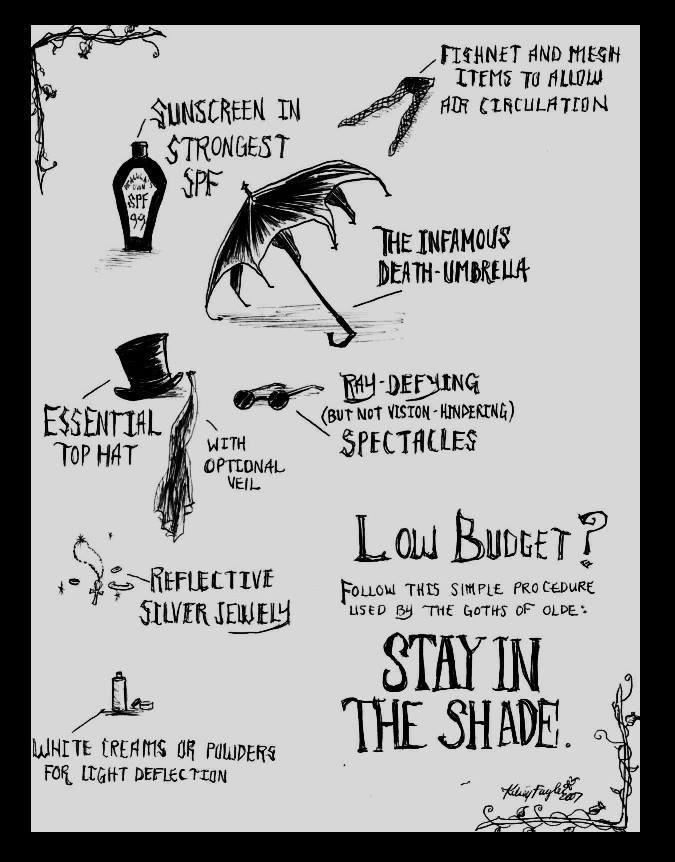 FISHNET AND MESH
ITEMS TO ALLOW
AIR CIRCULATION
SUNSCREEN IN
STRONGEST
SPF
DRACULA'S
OWN
SPF
99
THE INFAMOUS
DEATH-UMBRELLA
ESSENTIAL
TOP HAT
WITH
OPTIONAL
VEIL
RAY-DEFYING
(BUT NOT VISION-HINDERING)
SPECTACLES
REFLECTIVE
SILVER JEWELY
WHITE CREAMS OR POWDERS
FOR LIGHT DEFLECTION
LOW BUDGET?
FOLLOW THIS SIMPLE PROCEDURE
USED BY THE GOTHS OF OLDE:
STAY IN
THE SHADE.
2007